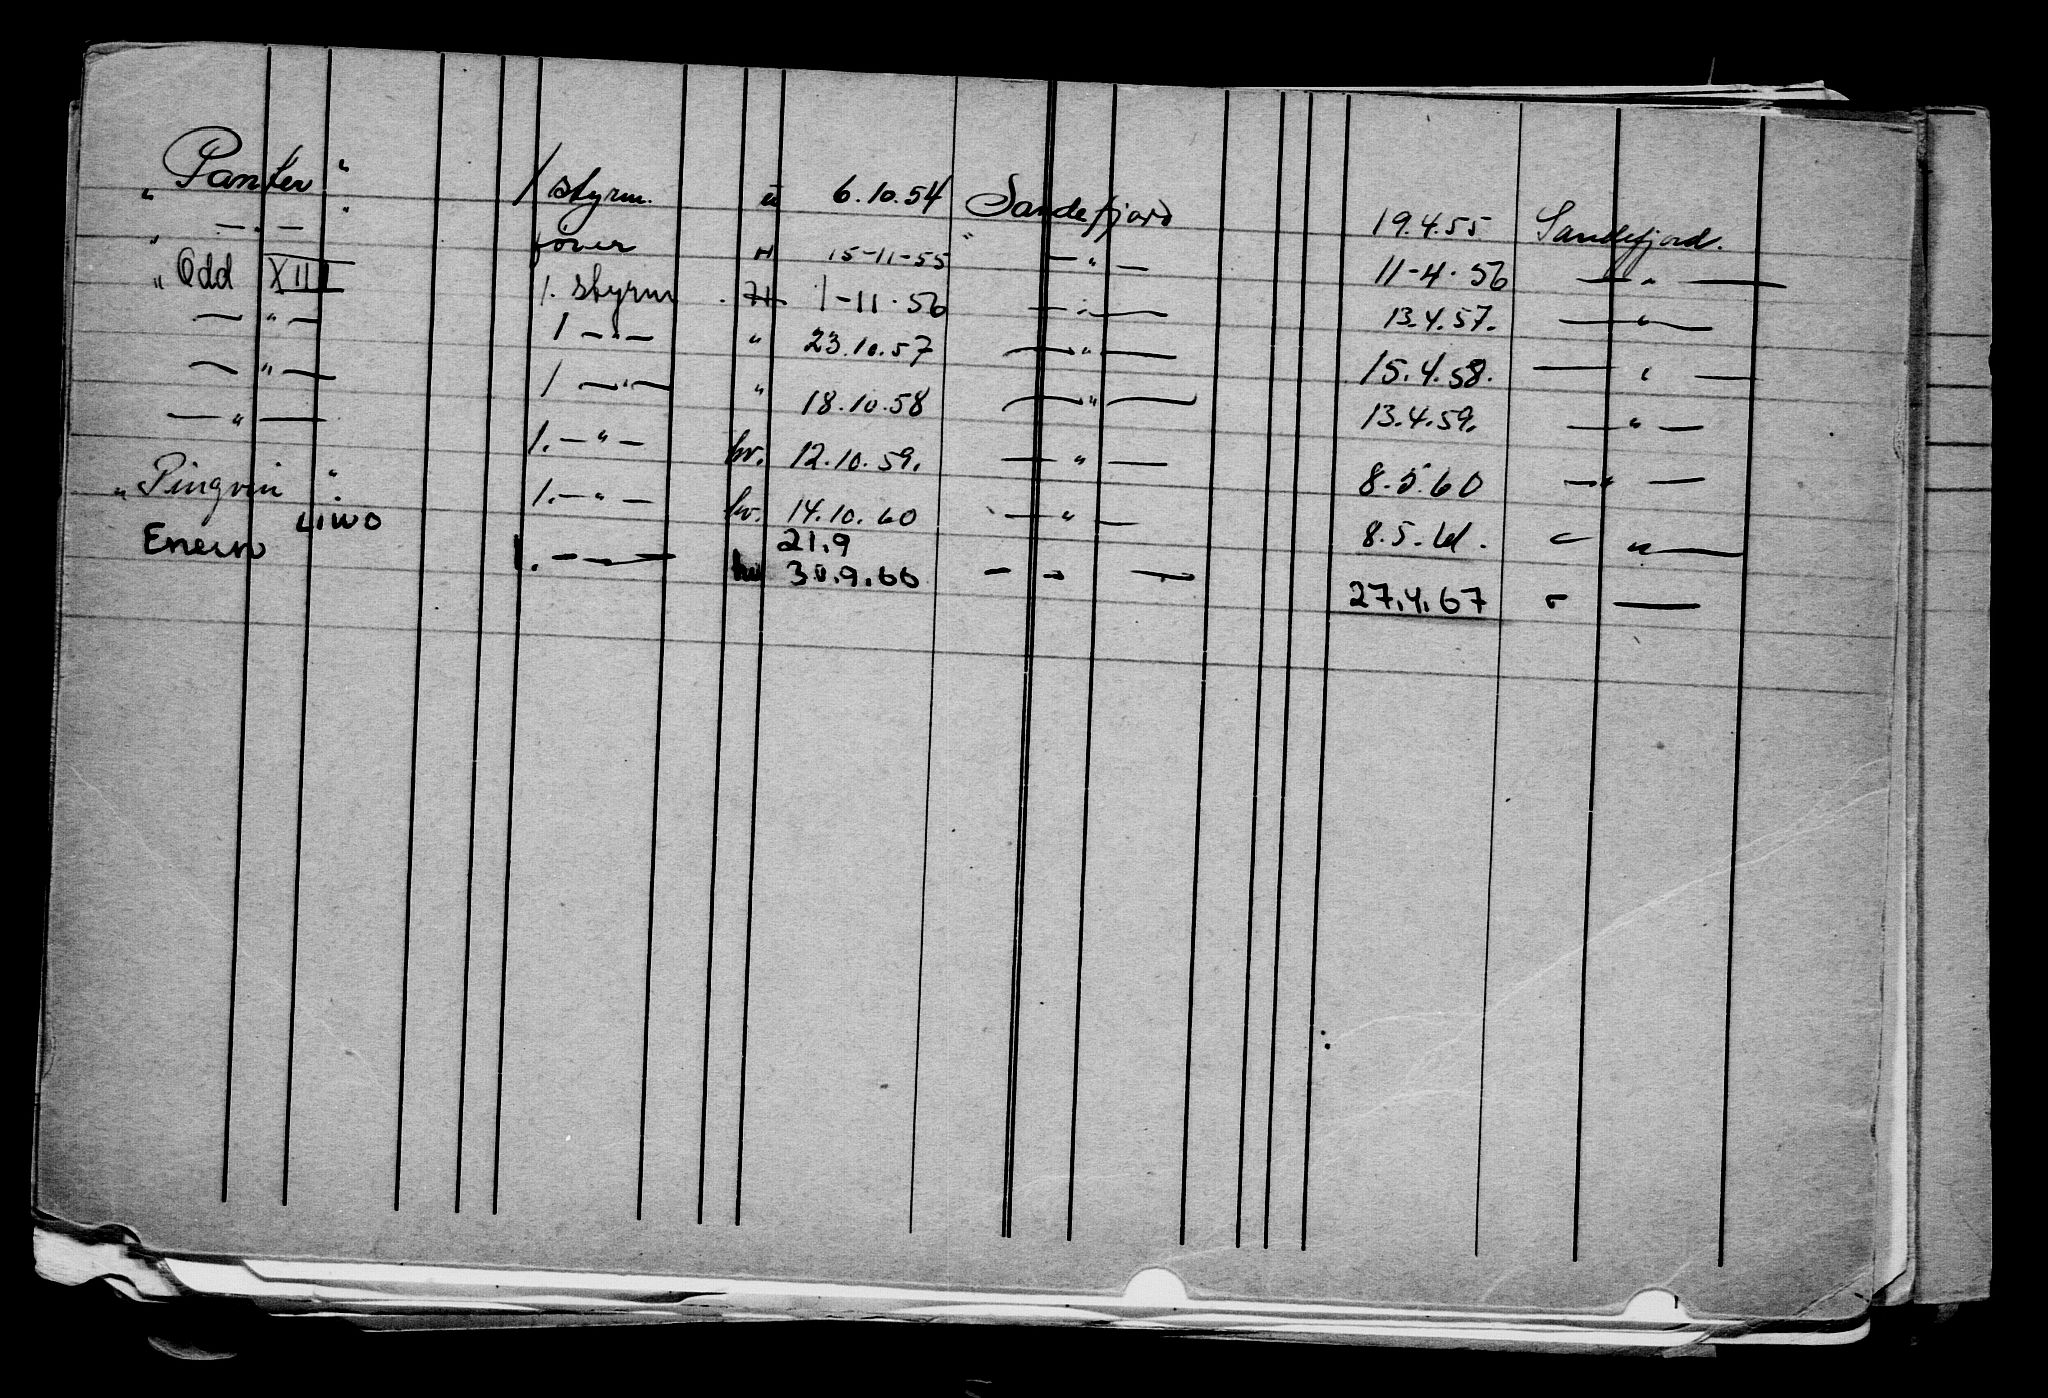 "Panter" 1 styrm. u 6.10.54 Sandefjord 19.4.55 Sandefjord.
" — " — " fører H 15-11-55 " — " — 11-4.56 — " —
"Odd XII 1. styrm H 1-11.56 — " — 13.4.57. — " —
— " — 1 — " — " 23.10.57 — " — 15.4.58. — " —
— " — 1 — " — " 18.10.58 — " — 13.4.59. — " —
— " — 1. — " — hv. 12.10.59. — " — 8.5.60 — " —
"Pingvin" 1. — " — hv. 14.10.60 — " — 8.5.61. — " —
LIWO 21.9
Enern 1. — " — 30.9.66 — " — 27.4.67 — " —